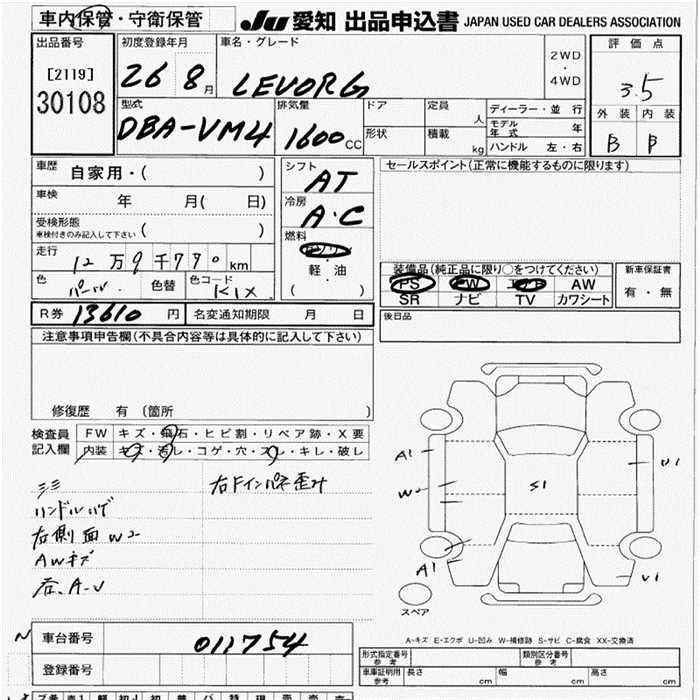 車内保管・守衛保管
JU 愛知 出品申込書 JAPAN USED CAR DEALERS ASSOCIATION
出品番号
[2119]
30108
初度登録年月
26 8月
車名・グレード
LEVORG
2WD
・
4WD
評価点
3.5
外装 内装
B B
型式
DBA-VM4
排気量
1600cc
ドア
形状
定員
人
積載
kg
ディーラー・並行
モデル年式
年
ハンドル 左・右
車歴
自家用・( )
車検
年 月( 日)
受検形態
車検付きのみ記入して下さい ( )
走行
12万9千770km
色
パール
色替
色コード
K1X
シフト
AT
冷房
A・C
燃料
ガソリン
・
軽・油
( )
セールスポイント(正常に機能するものに限ります)
装備品(純正品に限り○をつけてください)
PS PW エアB AW
SR ナビ TV カワシート
新車保証書
有・無
R券 13610円
名変通知期限 月 日
後日品
注意事項申告欄(不具合内容等は具体的に記入して下さい)
修復歴 有 (箇所 )
検査員記入欄
FW キズ・飛石・ヒビ割・リペア跡・X要
内装 キズ・汚レ・コゲ・穴・スレ・キレ・破レ
ミミ
ハンドルハゲ
右側面W2
AWキズ
右、A-U
右Fインパネ歪み
A1
W2
A1
S1
U1
U1
スペア
A-キズ E-エクボ U-凹み W-補修跡 S-サビ C-腐食 XX-交換済
車台番号
011754
登録番号
形式指定番号
参考
類別区分番号
参考
車庫証明用
参考
長さ cm
幅 cm
高さ cm